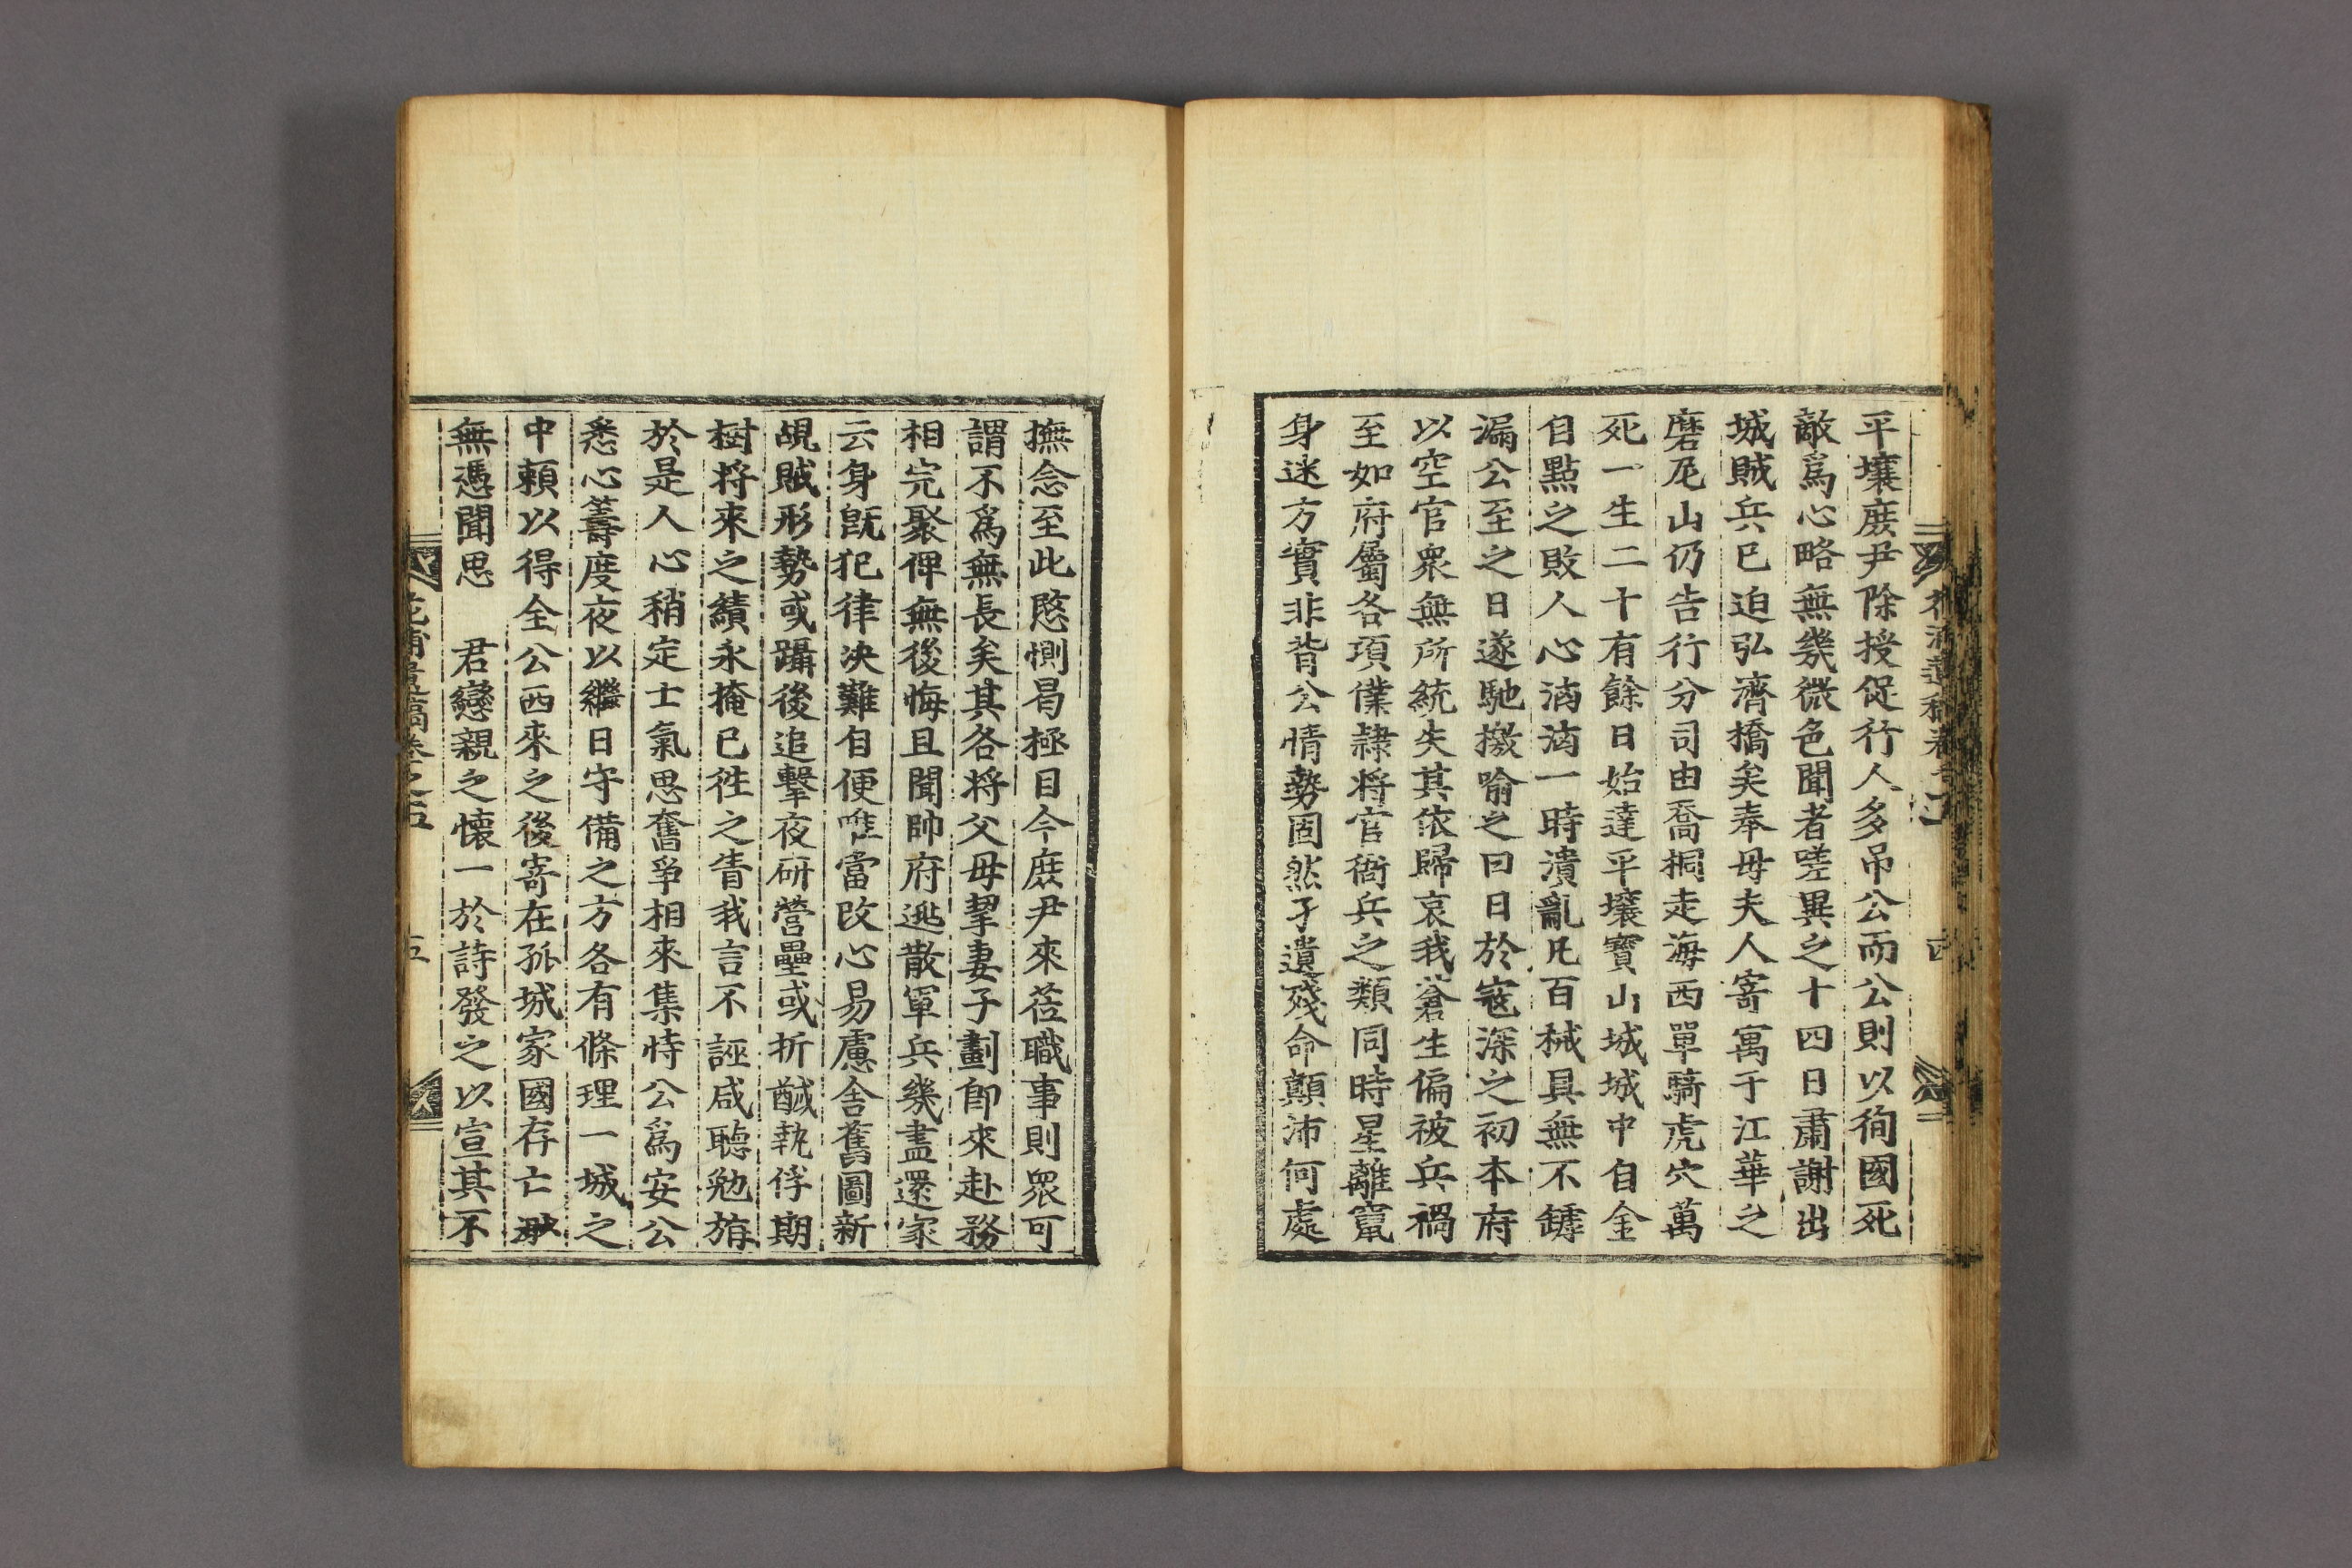 平壤庶尹除授促行人多吊公而公則以徇國死
敵爲心略無幾微色聞者嗟異之十四日肅謝出
城賊兵已迫弘濟橋矣奉母夫人寄寓于江華之
磨尼山仍告行分司由喬桐走海西單騎虎穴萬
死一生二十有餘日始達平壤寶山城城中自金
自點之敗人心洶洶一時潰亂凡百械具無不罅
漏公至之日遂馳檄喩之曰日於寇深之初本府
以空官衆無所統失其依歸哀我蒼生偏被兵禍
至如府屬各項僕隷將官衙兵之類同時星離竄
身迷方實非背公情勢固然孑遺殘命顚沛何處
撫念至此慇惻曷極目今庶尹來莅職事則衆可
謂不爲無長矣其各將父母挈妻子劃卽來赴務
相完聚俾無後悔且聞帥府逃散軍兵幾盡還家
云身旣犯律决難自便唯當改心易慮舍舊圖新
覘賊形勢或躡後追擊夜斫營壘或折馘執俘期
樹將來之績永掩已徃之眚我言不誣咸聽勉旃
於是人心稍定士氣思奮爭相來集恃公爲安公
悉心籌度夜以繼日守備之方各有條理一城之
中賴以得全公西來之後寄在孤城家國存亡
無憑聞思　君戀親之懷一於詩發之以宣其不
花浦遺稿卷之五
五